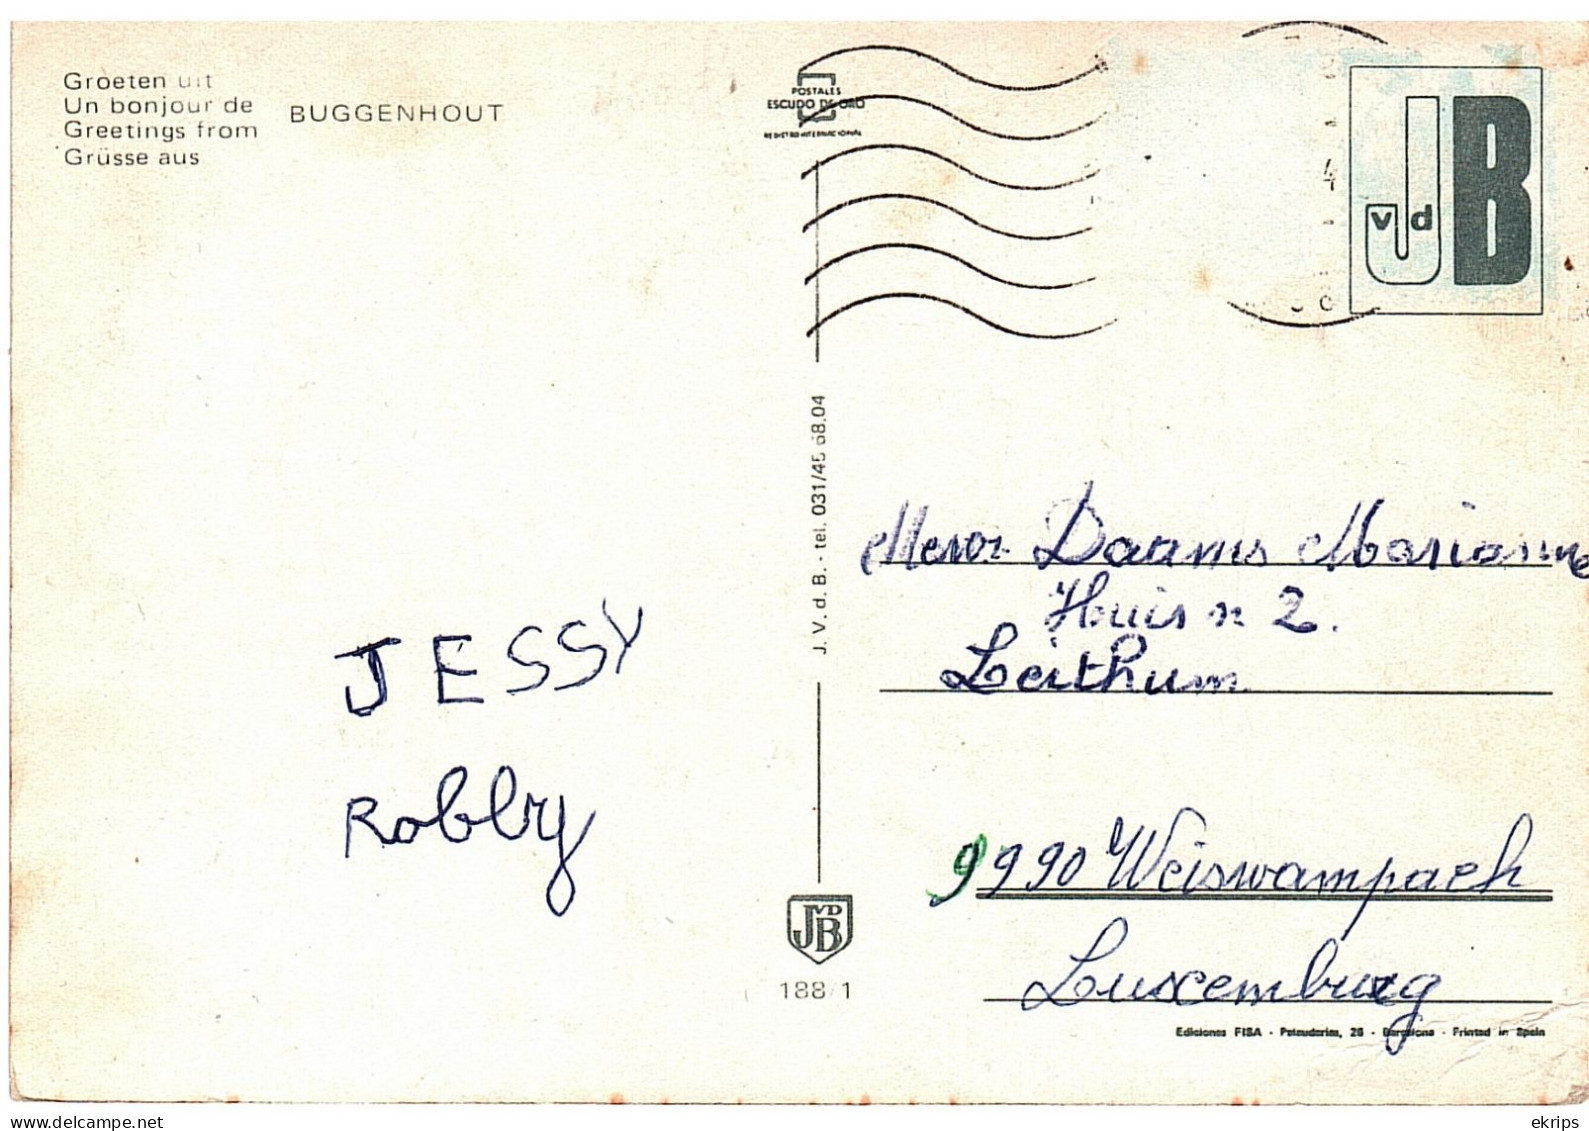 Groeten uit
Un bonjour de
Greetings from
Grüsse aus
BUGGENHOUT
POSTALES
ESCUDO DE ORO
4
J V d B
J. V. d. B. - tel. 031/45 68.04
Mevr. Daams Marianne
Huis n 2.
Leithum
JESSY
Robby
9990 Weiswampach
Luxemburg
JVDB
188/1
Ediciones FISA - Palaudarias, 26 - Barcelona - Printed in Spain
ekrips